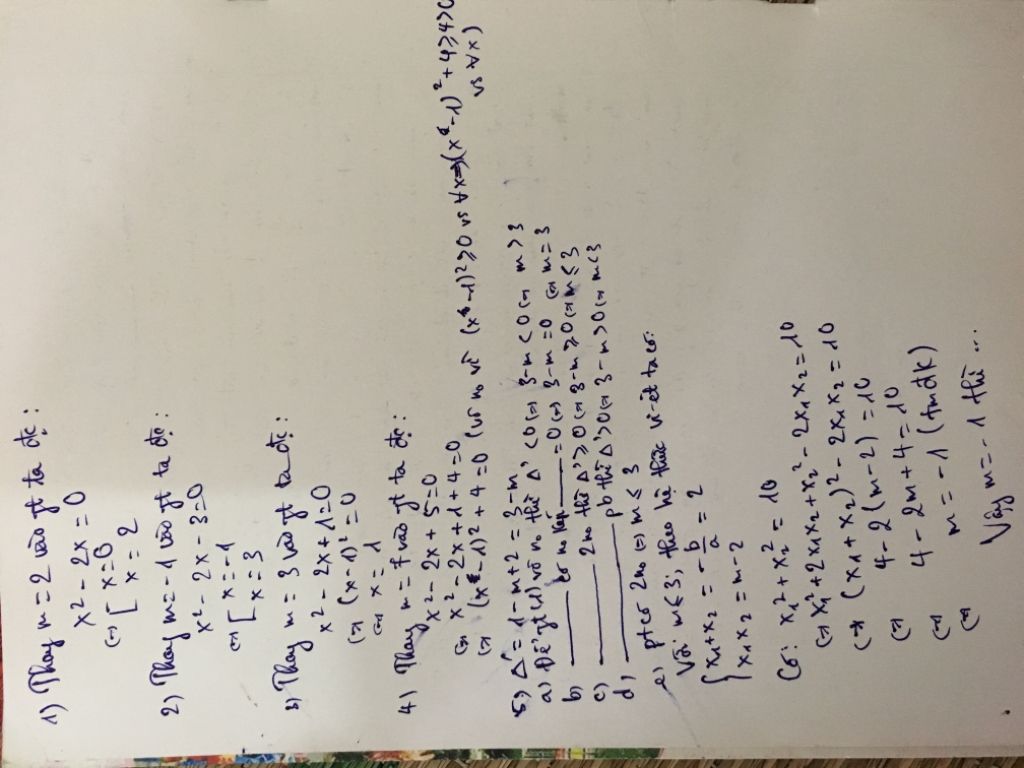 1) Thay m = 2 vào pt ta đc:
x² - 2x = 0
(=) [ x = 0
x = 2
2) Thay m = -1 vào pt ta đc:
x² - 2x - 3 = 0
(=) [ x = -1
x = 3
3) Thay m = 3 vào pt ta đc:
x² - 2x + 1 = 0
(=) (x - 1)² = 0
(=) x = 1
4) Thay m = 7 vào pt ta đc:
x² - 2x + 5 = 0
(=) x² - 2x + 1 + 4 = 0
(=) (x - 1)² + 4 = 0 (vô no vì (x - 1)² ≥ 0 vs ∀x =) (x - 1)² + 4 ≥ 4 > 0
vs ∀x)
5) Δ' = 1 - m + 2 = 3 - m
a) Để pt(1) vô no thì Δ' < 0 (=) 3 - m < 0 (=) m > 3
b) ——— có no kép ——— = 0 (=) 3 - m = 0 (=) m = 3
c) ——— 2 no thì Δ' ≥ 0 (=) 3 - m ≥ 0 (=) m ≤ 3
d) ——— pb thì Δ' > 0 (=) 3 - m > 0 (=) m < 3
e) pt có 2 no (=) m ≤ 3
Với m ≤ 3; theo hệ thức vi-ét ta có:
{ x₁ + x₂ = -b/a = 2
x₁x₂ = m - 2
Có: x₁² + x₂² = 10
(=) x₁² + 2x₁x₂ + x₂² - 2x₁x₂ = 10
(=) (x₁ + x₂)² - 2x₁x₂ = 10
4 - 2(m - 2) = 10
(=) 4 - 2m + 4 = 10
(=) m = -1 (tmđk)
(=)
Vậy m = -1 thì ...